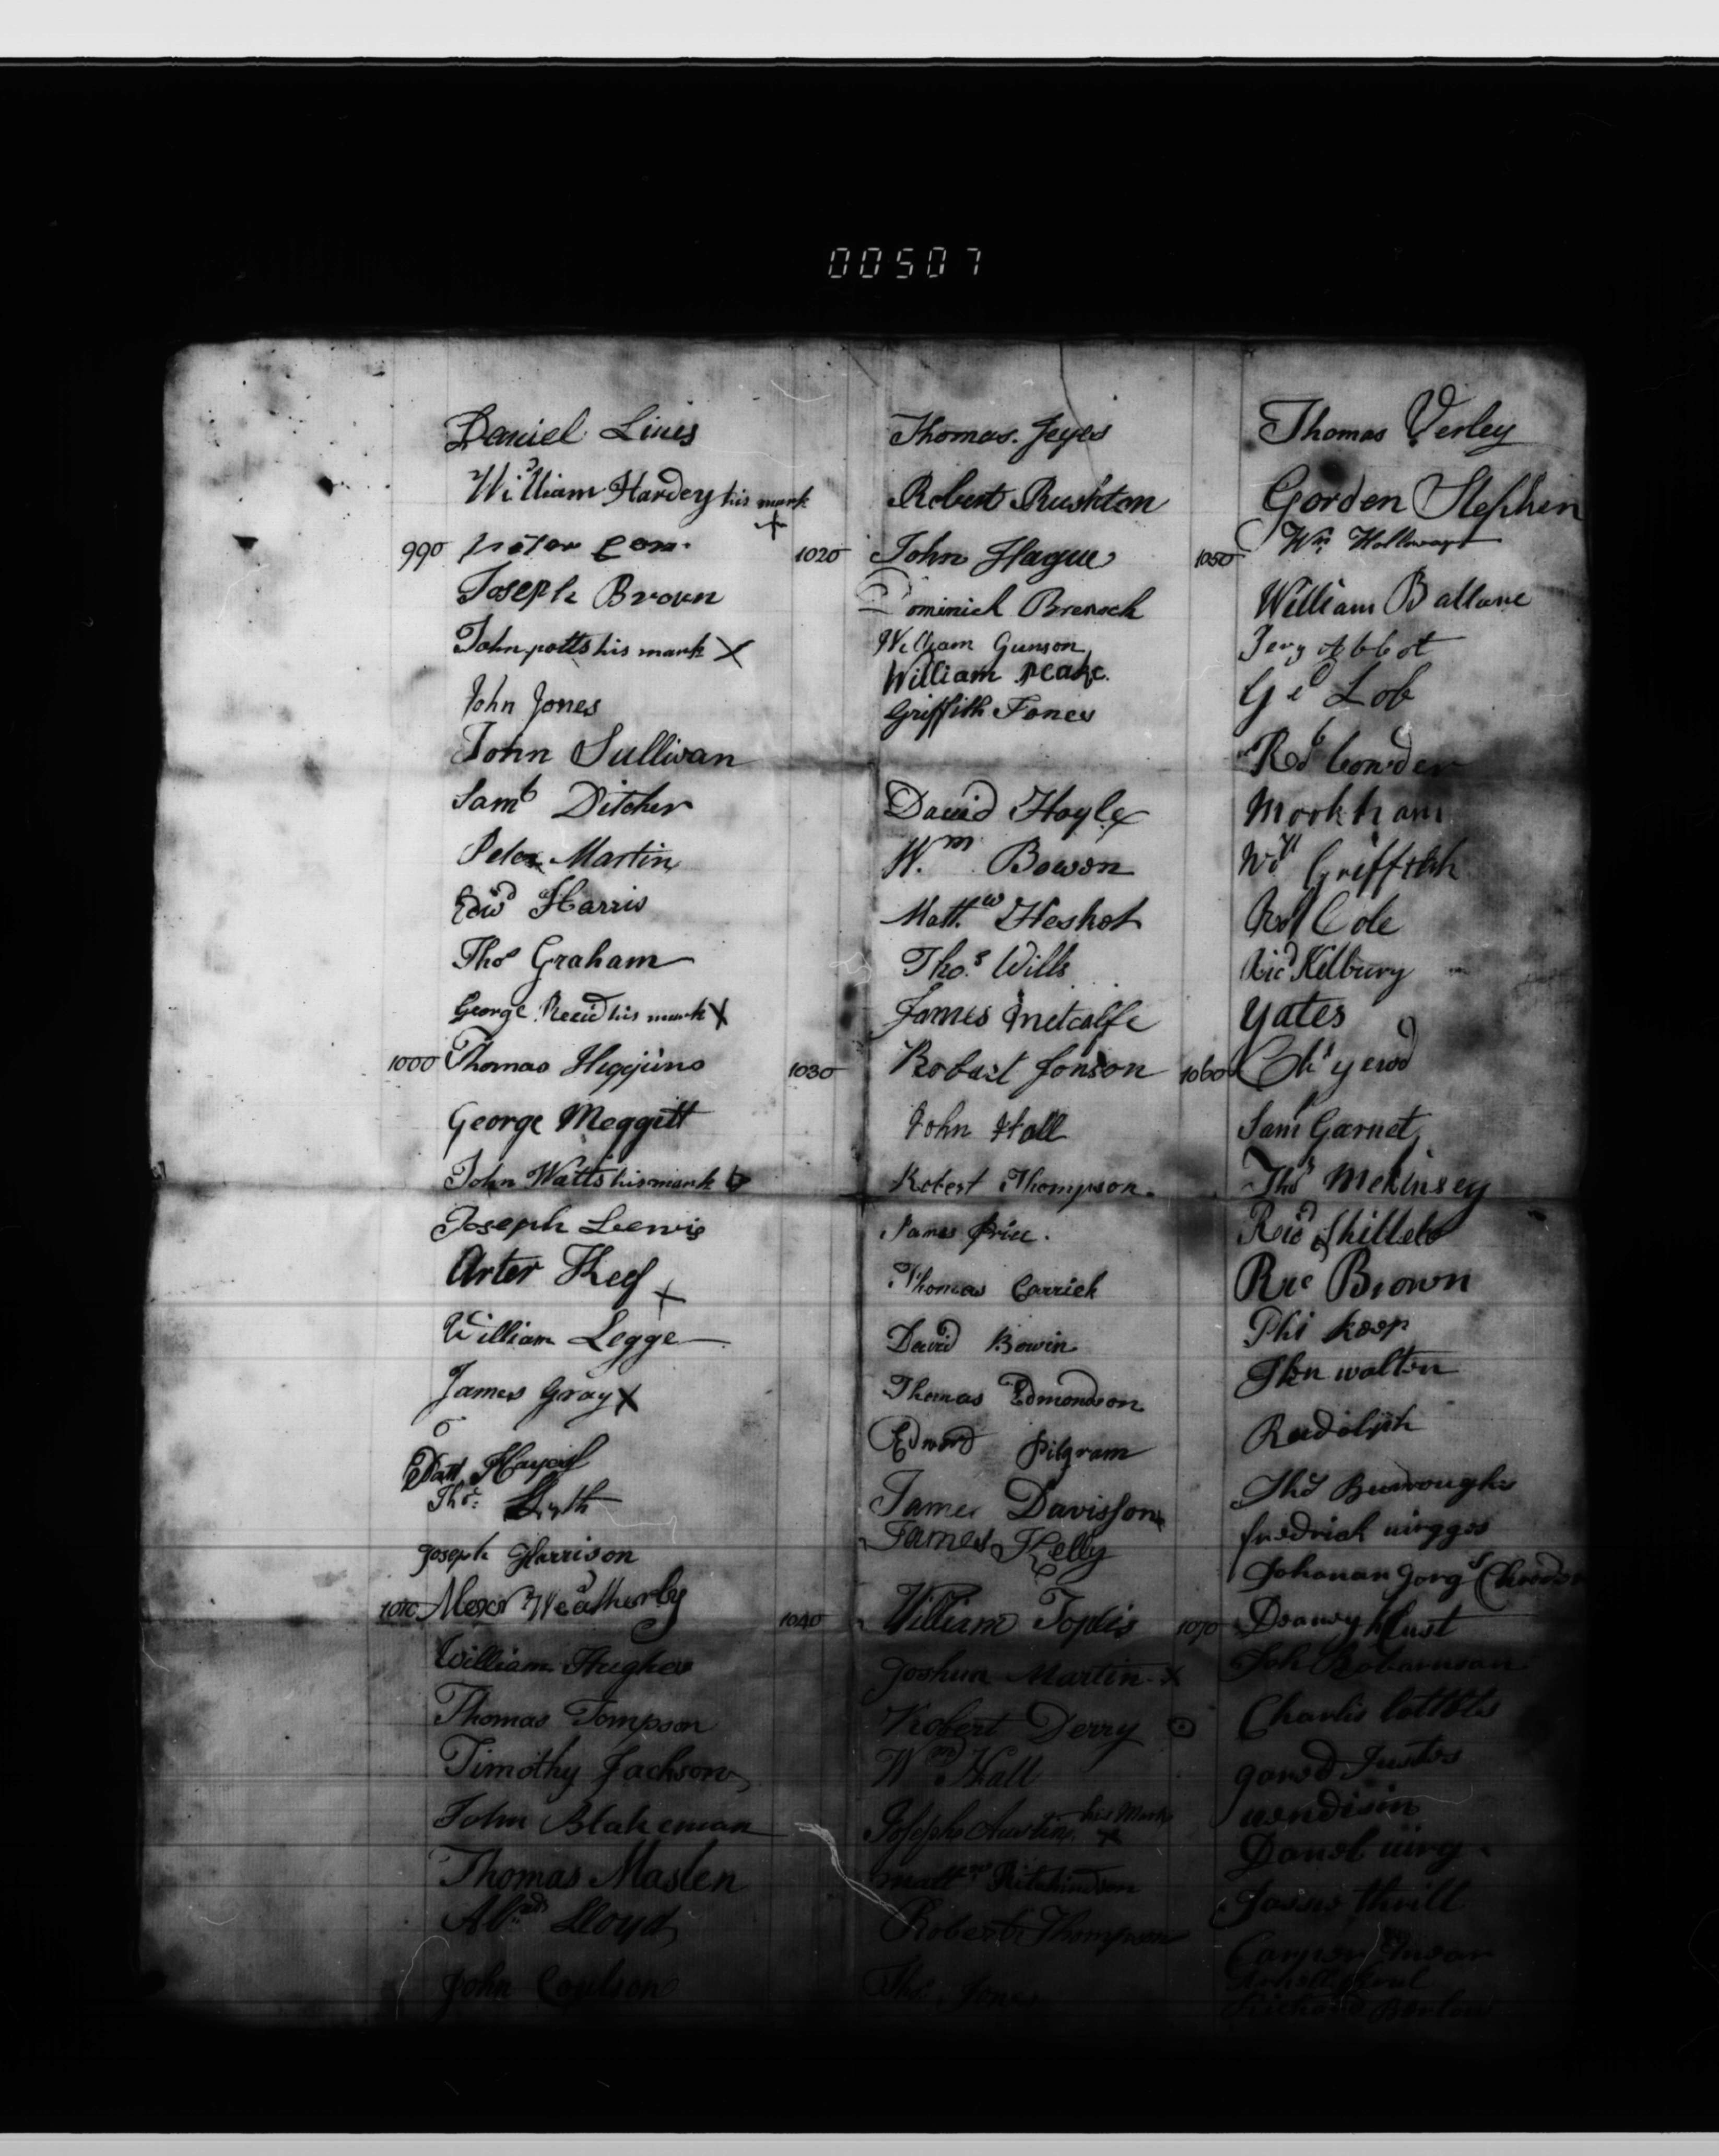 00507
Daniel Lines
William Hardey his mark
990
Joseph Brown
John potts his mark X
John Jones
John Sullivan
Saml Ditcher
Peter Martin
Edwd Harris
Thos Graham
George Reeid his mark X
1000 Thomas Higgins
George Meggitt
John Watts his mark
Joseph Leewis
Arter Keef X
William Legge
James Gray X
Thos
Joseph Harrison
1010 Weatherly
William Hughes
Thomas Tompson
Timothy Jackson
John Blakeman
Thomas Maslen
Lloyd
John Coulson
Thomas Jeyes
Robert Rushton
1020 John Hague
Dominick
William Gunson
William Peake
Griffith Jones
David Hoyle
Wm Bowen
Mattw Heskot
Thos Wills
James Metcalfe
1030 Robart Jonson
John Hall
Robert Thompson
James Price
Thomas Carrick
David Bowin
Thomas Edmondson
Edward Pilgram
James Davisson
James Kelly
1040 William Toplis
Joshua Martin X
Robert Derry
Wm Hall
Joseph Austin his Mark X
Mattw
Robert Thompson
Thos Jones
Thomas Verley
Gorden Stephen
1050 Wm Holloway
William Ballane
Jery Abbot
Ge Lob
Rob Cowder
Mookham
Griffith
Cole
Ricd Kelbury
Yates
1060
Saml Garnet
Thos McKinsey
Ricd
Ric Brown
Phi koop
walton
Rudolph
Thos Burroughs
fredrick
Johanan Jorg
1070
Charlis
Justes
Danel
thrill
Richard Barlow